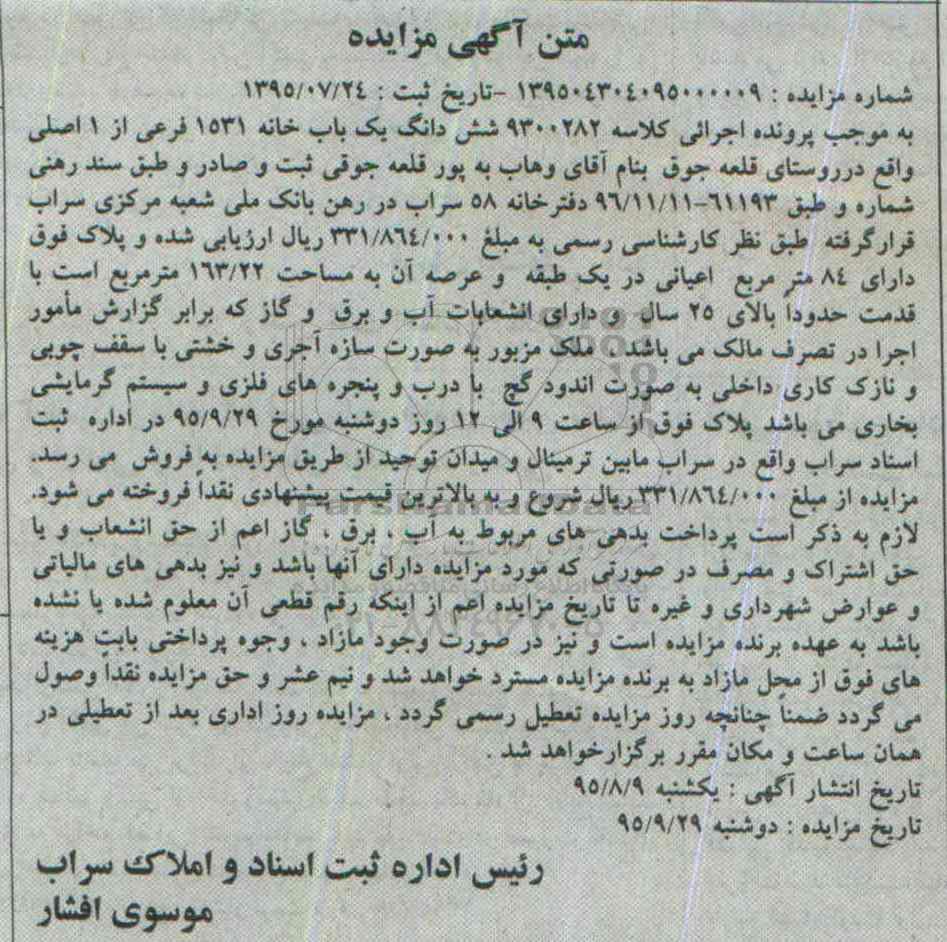 متن آگهی مزایده
شماره مزایده : ۱۳۹۵۰۴۳۰۴۰۹۵۰۰۰۰۰۰۹ -تاریخ ثبت : ۱۳۹۵/۰۷/۲۴
به موجب پرونده اجرائی کلاسه ۹۳۰۰۲۸۲ شش دانگ یک باب خانه ۱۵۳۱ فرعی از ۱ اصلی
واقع درروستای قلعه جوق بنام آقای وهاب به پور قلعه جوقی ثبت و صادر و طبق سند رهنی
شماره و طبق ۶۱۱۹۳-۹۶/۱۱/۱۱ دفترخانه ۵۸ سراب در رهن بانک ملی شعبه مرکزی سراب
قرارگرفته طبق نظر کارشناسی رسمی به مبلغ ۳۳۱/۸۶۴/۰۰۰ ریال ارزیابی شده و پلاک فوق
دارای ۸۴ متر مربع اعیانی در یک طبقه و عرصه آن به مساحت ۱۶۳/۲۲ مترمربع است با
قدمت حدوداً بالای ۲۵ سال و دارای انشعابات آب و برق و گاز که برابر گزارش مأمور
اجرا در تصرف مالک می باشد ، ملک مزبور به صورت سازه آجری و خشتی با سقف چوبی
و نازک کاری داخلی به صورت اندود گچ با درب و پنجره های فلزی و سیستم گرمایشی
بخاری می باشد پلاک فوق از ساعت ۹ الی ۱۲ روز دوشنبه مورخ ۹۵/۹/۲۹ در اداره ثبت
اسناد سراب واقع در سراب مابین ترمینال و میدان توحید از طریق مزایده به فروش می رسد.
مزایده از مبلغ ۳۳۱/۸۶۴/۰۰۰ ریال شروع و به بالاترین قیمت پیشنهادی نقداً فروخته می شود.
لازم به ذکر است پرداخت بدهی های مربوط به آب ، برق ، گاز اعم از حق انشعاب و یا
حق اشتراک و مصرف در صورتی که مورد مزایده دارای آنها باشد و نیز بدهی های مالیاتی
و عوارض شهرداری و غیره تا تاریخ مزایده اعم از اینکه رقم قطعی آن معلوم شده یا نشده
باشد به عهده برنده مزایده است و نیز در صورت وجود مازاد ، وجوه پرداختی بابت هزینه
های فوق از محل مازاد به برنده مزایده مسترد خواهد شد و نیم عشر و حق مزایده نقداً وصول
می گردد ضمناً چنانچه روز مزایده تعطیل رسمی گردد ، مزایده روز اداری بعد از تعطیلی در
همان ساعت و مکان مقرر برگزارخواهد شد .
تاریخ انتشار آگهی : یکشنبه ۹۵/۸/۹
تاریخ مزایده : دوشنبه ۹۵/۹/۲۹
رئیس اداره ثبت اسناد و املاک سراب
موسوی افشار